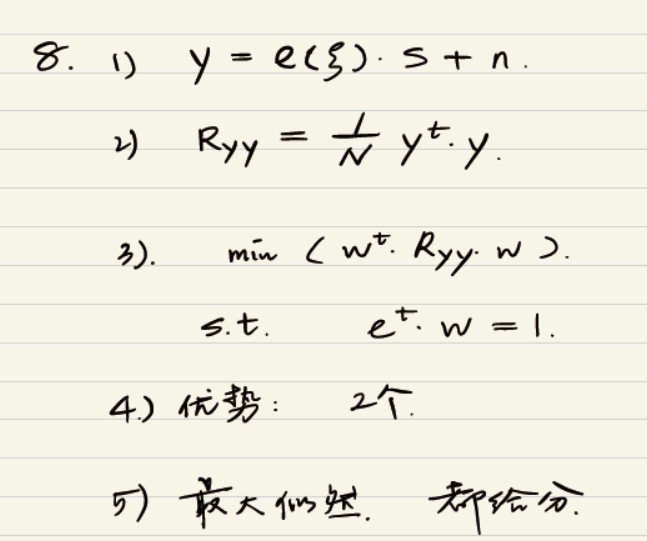 8. 1) y = e(ξ)· s + n.
2) Ryy = 1/N y^t· y.
3). min ( w^t· Ryy· w ).
s.t. e^t· w = 1.
4.) 优势: 2个.
5) 最大似然. 都给分.